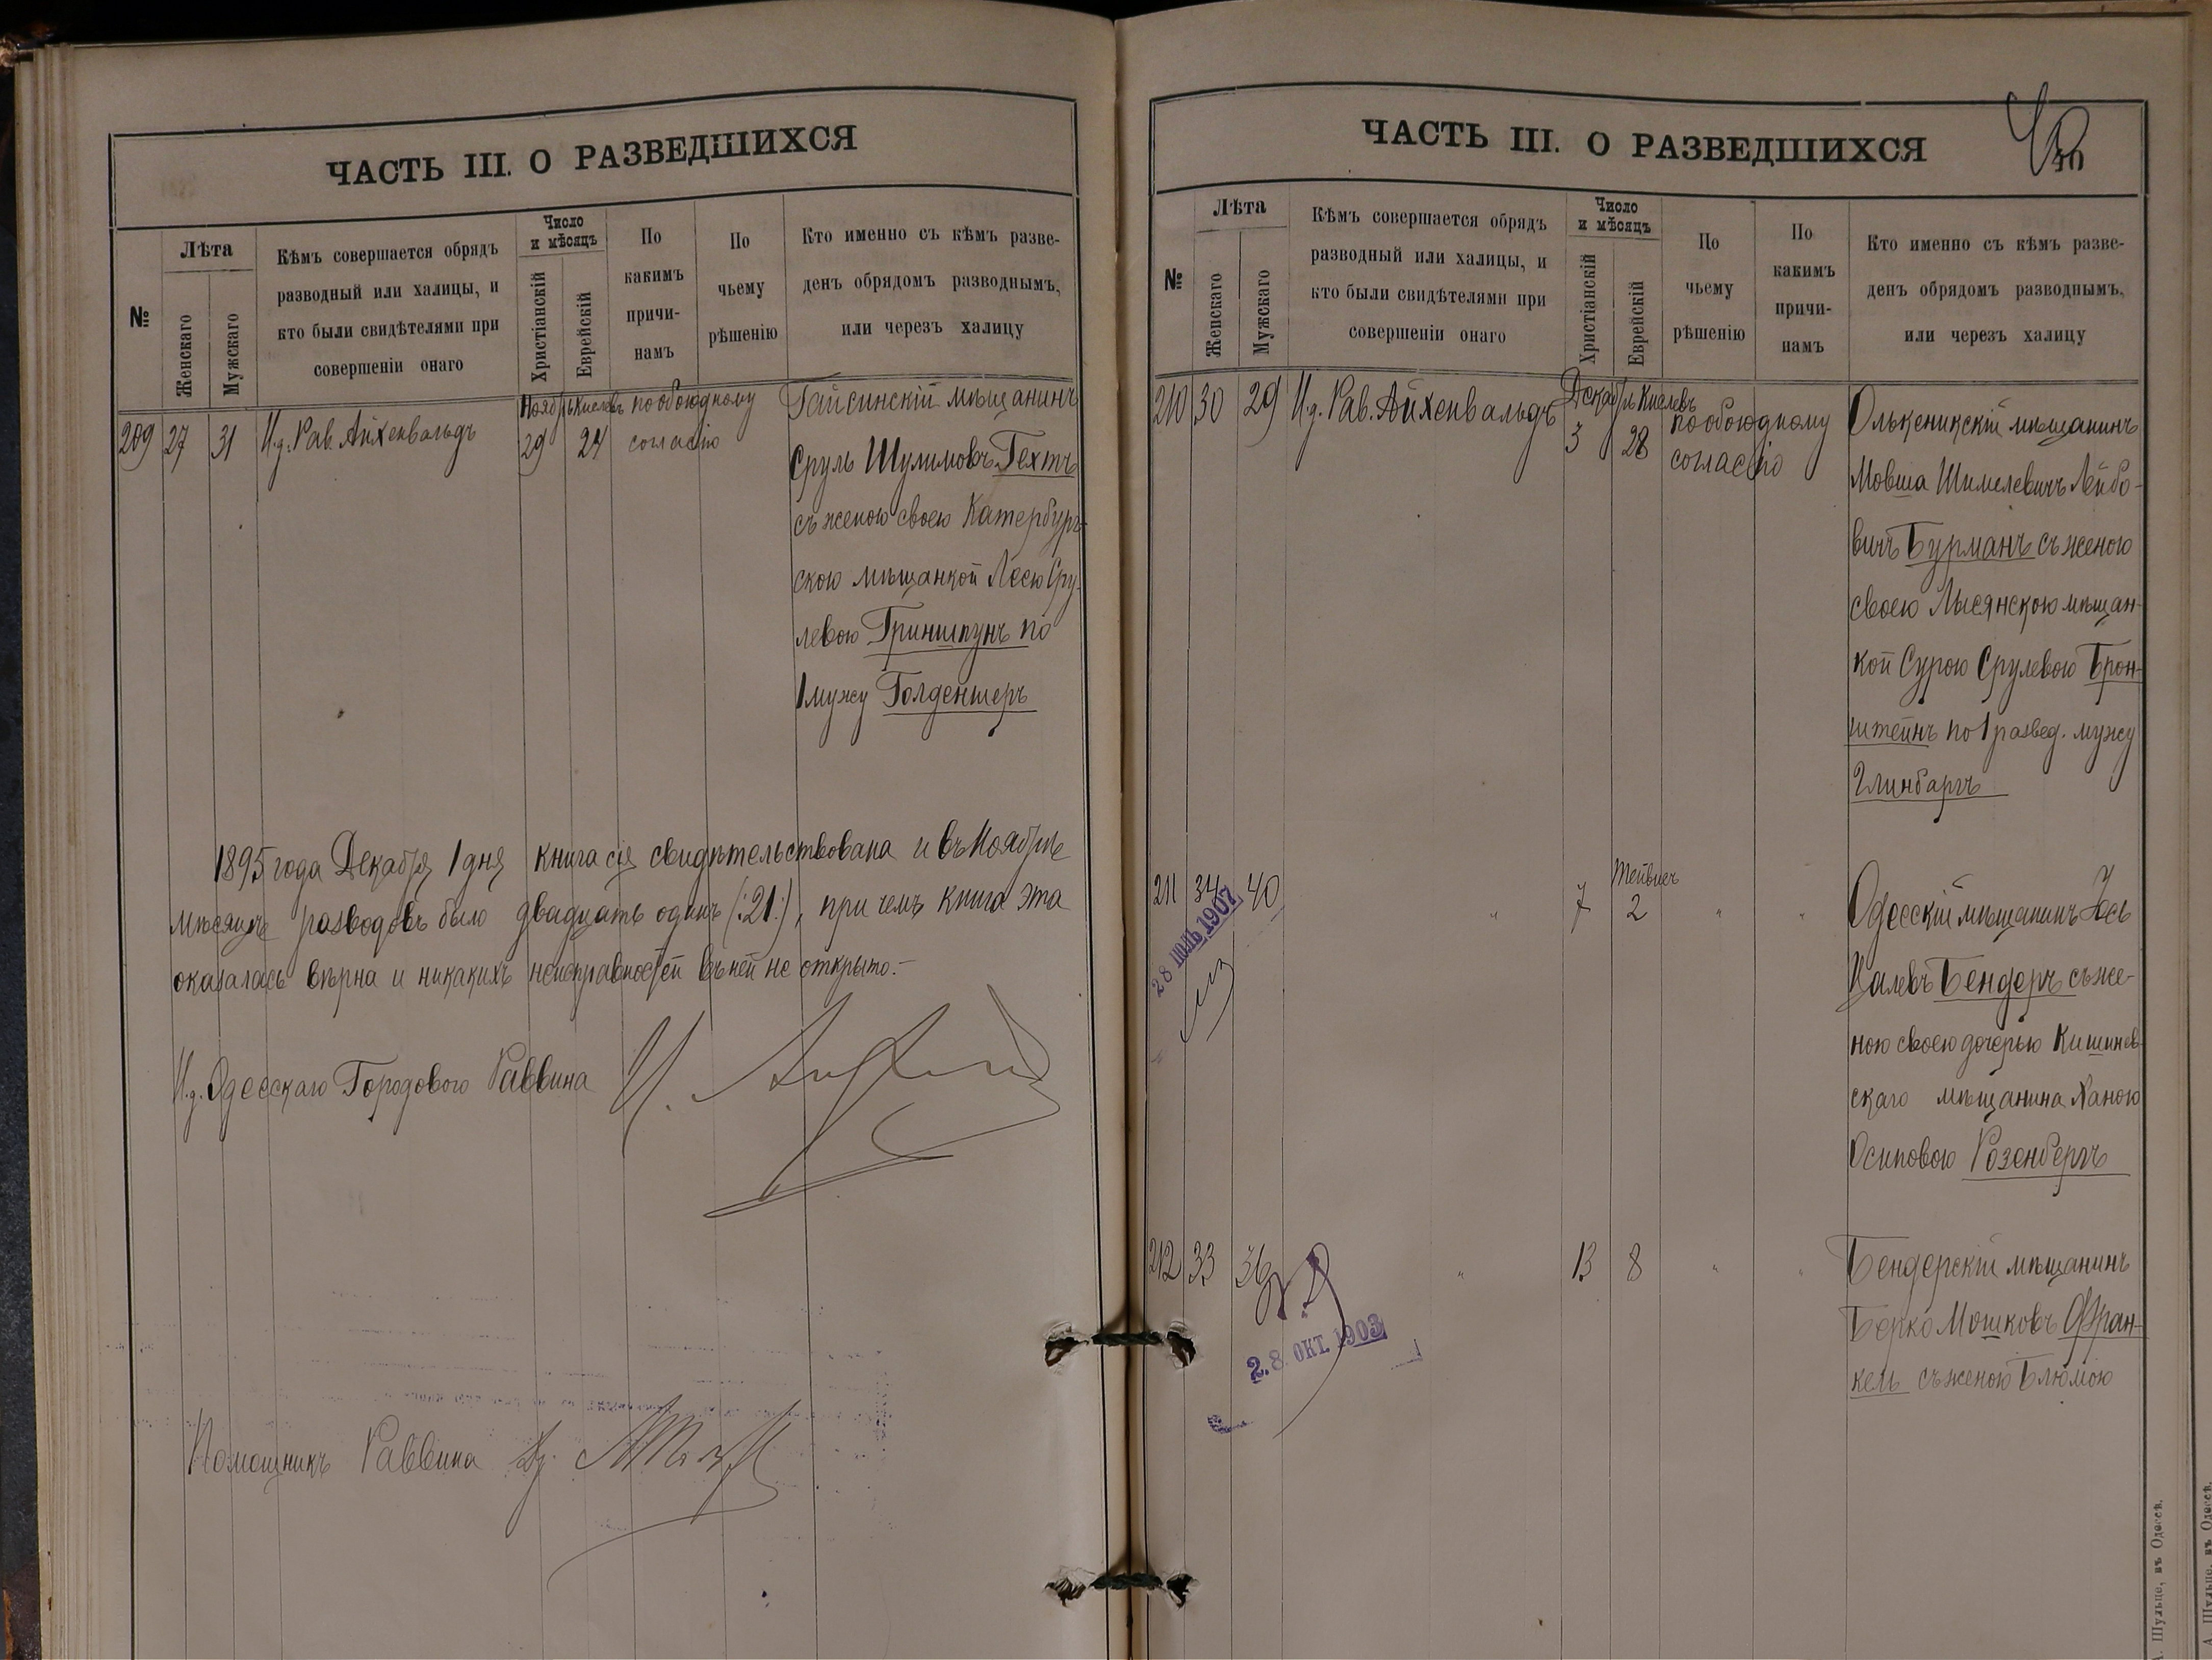 ЧАСТЬ III. О РАЗВЕДШИХСЯ
№
Лѣта
Женскаго
Мужскаго
Кѣмъ совершается обрядъ
разводный или халицы, и
кто были свидѣтелями при
совершеніи онаго
Число
и мѣсяцъ
Христіанскій
Еврейскій
По
какимъ
причи-
намъ
По
чьему
рѣшенію
Кто именно съ кѣмъ разве-
денъ обрядомъ разводнымъ,
или черезъ халицу
209 27 31 И.д. Рав. Айхенвальдъ
Ноябрь Кислевъ
29 24
по обоюдному
согласію
Гайсинскій мѣщанинъ
Сруль Шулимовъ Гехтъ
съ женою своею Катербург-
скою мѣщанкой Лоею Сру-
левою Гриншпунъ по
1 мужу Голденшеръ
1895 года Декабря 1 дня книга сія свидѣтельствована и въ Ноябрѣ
мѣсяцѣ разводовъ было двадцать одинъ (:21:), при чемъ книга эта
оказалась вѣрна и никакихъ неисправностей въ ней не открыто.-
И.д. Одесскаго Городового Раввина
Помощникъ Раввина
ЧАСТЬ III. О РАЗВЕДШИХСЯ
№
Лѣта
Женскаго
Мужскаго
Кѣмъ совершается обрядъ
разводный или халицы, и
кто были свидѣтелями при
совершеніи онаго
Число
и мѣсяцъ
Христіанскій
Еврейскій
По
чьему
рѣшенію
По
какимъ
причи-
намъ
Кто именно съ кѣмъ разве-
денъ обрядомъ разводнымъ,
или черезъ халицу
210 30 29 И.д. Рав. Айхенвальдъ
Декабрь Кислевъ
3 28
по обоюдному
согласію
Олькеникскій мѣщанинъ
Мовша Шимелевичъ Лейбо-
вичъ Бурманъ съ женою
своею Лысянскою мѣщан-
кой Сурою Срулевою Брон-
штейнъ по 1 развед. мужу
Глинбаргъ
211 34 40 " 7
Тейвесъ
2 " "
Одесскій мѣщанинъ Іось
Цалевъ Бендеръ съ же-
ною своею дочерью Кишинев-
скаго мѣщанина Ханою
Осиповою Розенбергъ
28 ІЮЛЬ 1907
212 33 36 " 13 8 " "
Бендерскій мѣщанинъ
Берко Мошковъ Фран-
кель съ женою Блюмою
2.8. ОКТ. 1903
А. Шульце, въ Одессѣ.
А. Шульце, въ Одессѣ.